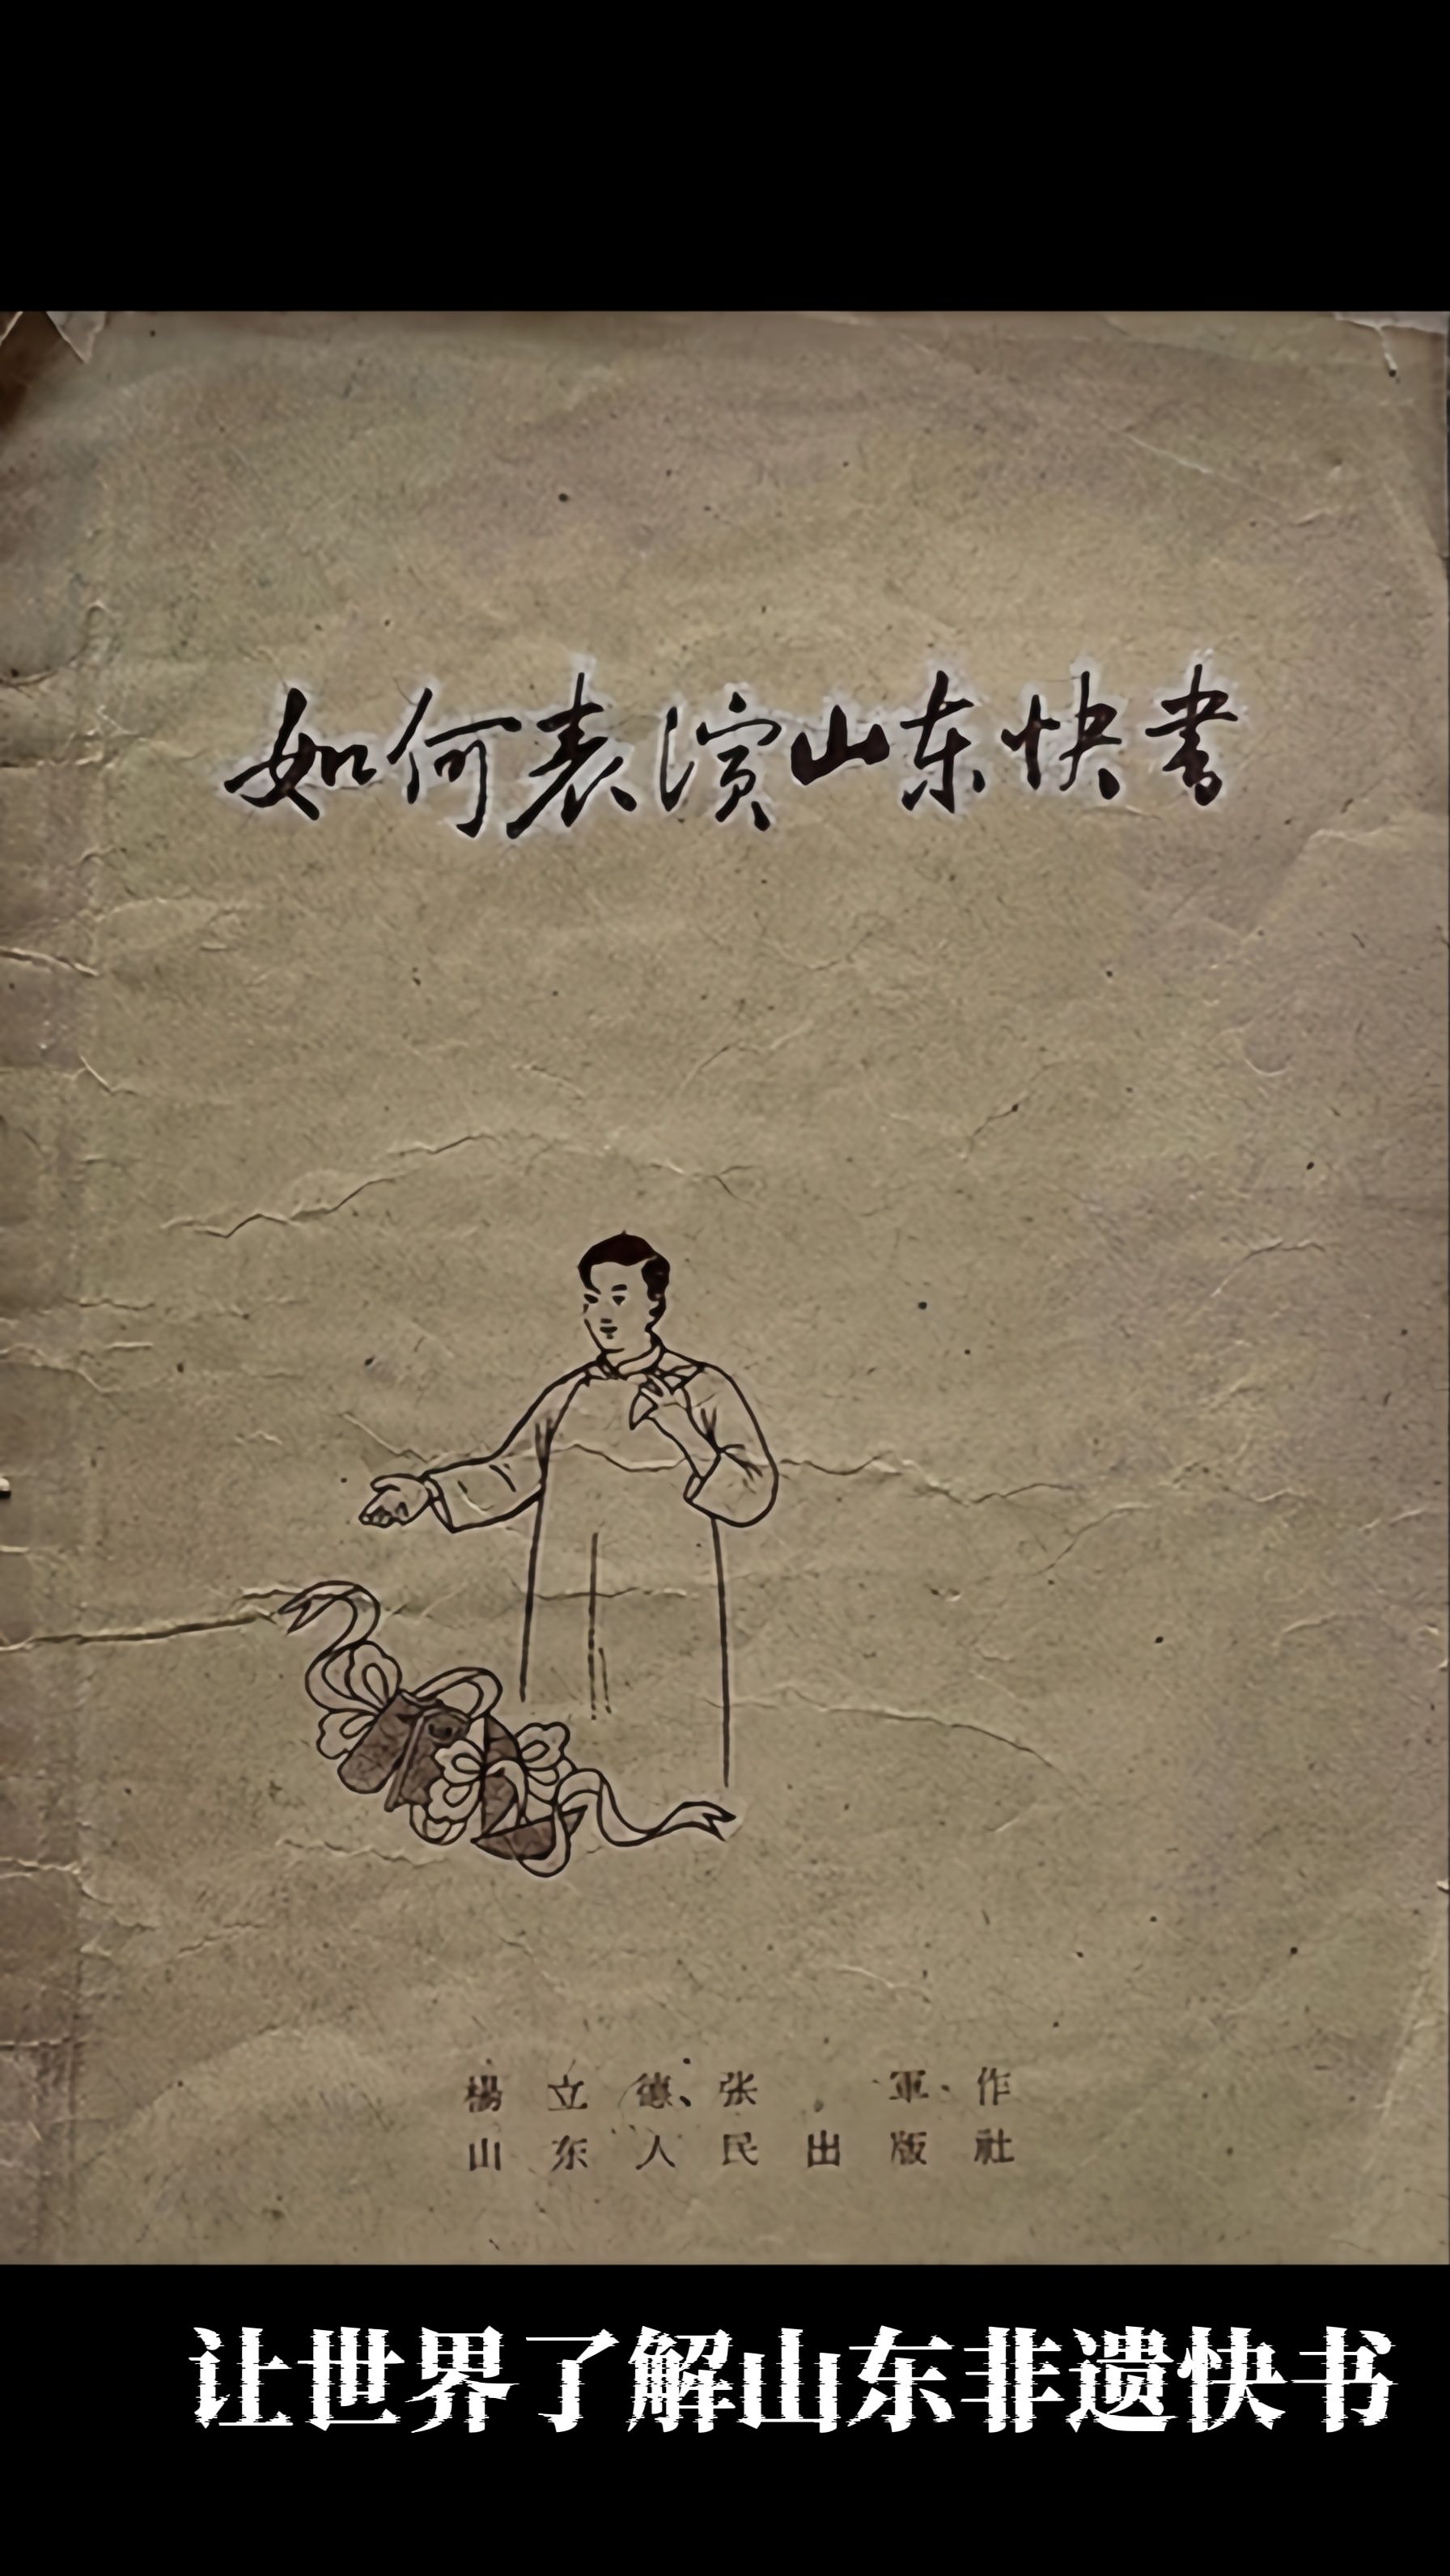 如何表演山东快書
楊立德、张 軍 作
山东人民出版社
让世界了解山东非遗快书